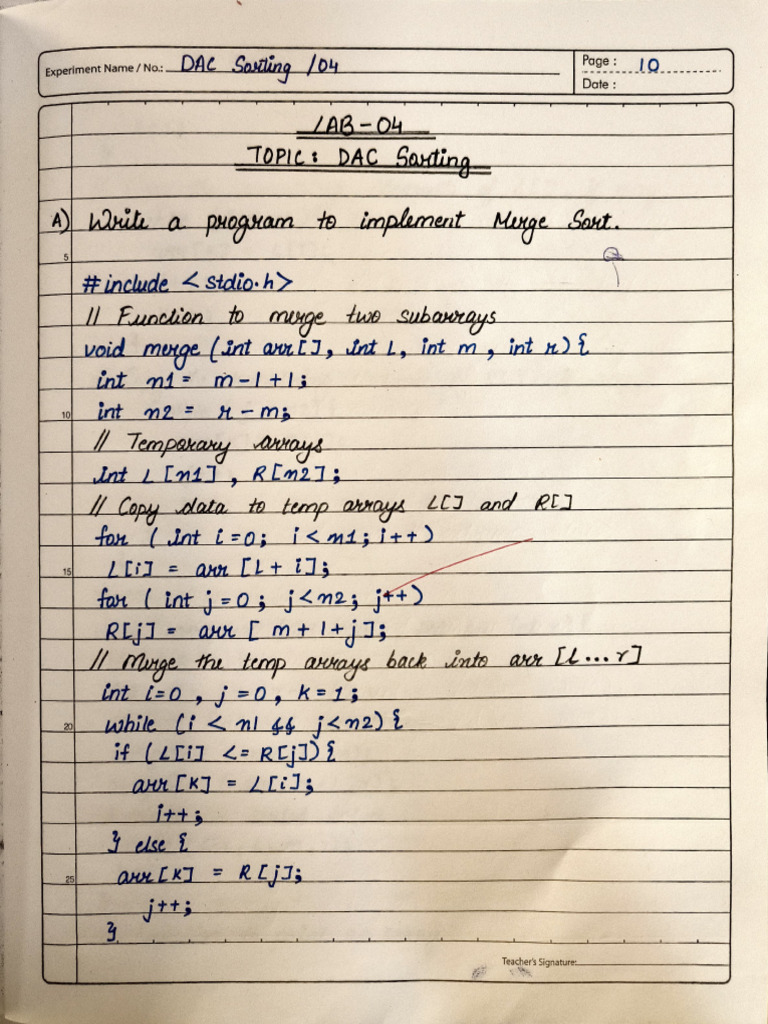 Experiment Name / No.: DAC Sorting /04
Page : 10
Date :
LAB-04
TOPIC: DAC Sorting
A) Write a program to implement Merge Sort.
5
#include <stdio.h>
// Function to merge two subarrays
void merge (int arr[], int l, int m, int r) {
int n1 = m-l+1;
10 int n2 = r-m;
// Temporary arrays
int L[n1], R[n2];
// Copy data to temp arrays L[] and R[]
for (int i=0; i<n1; i++)
15 L[i] = arr [l+i];
for (int j=0; j<n2; j++)
R[j] = arr [m+1+j];
// Merge the temp arrays back into arr [l...r]
int i=0, j=0, k=1;
20 while (i < n1 && j<n2) {
if (L[i] <= R[j]) {
arr[k] = L[i];
i++;
} else {
25 arr[k] = R[j];
j++;
}
Teacher's Signature: